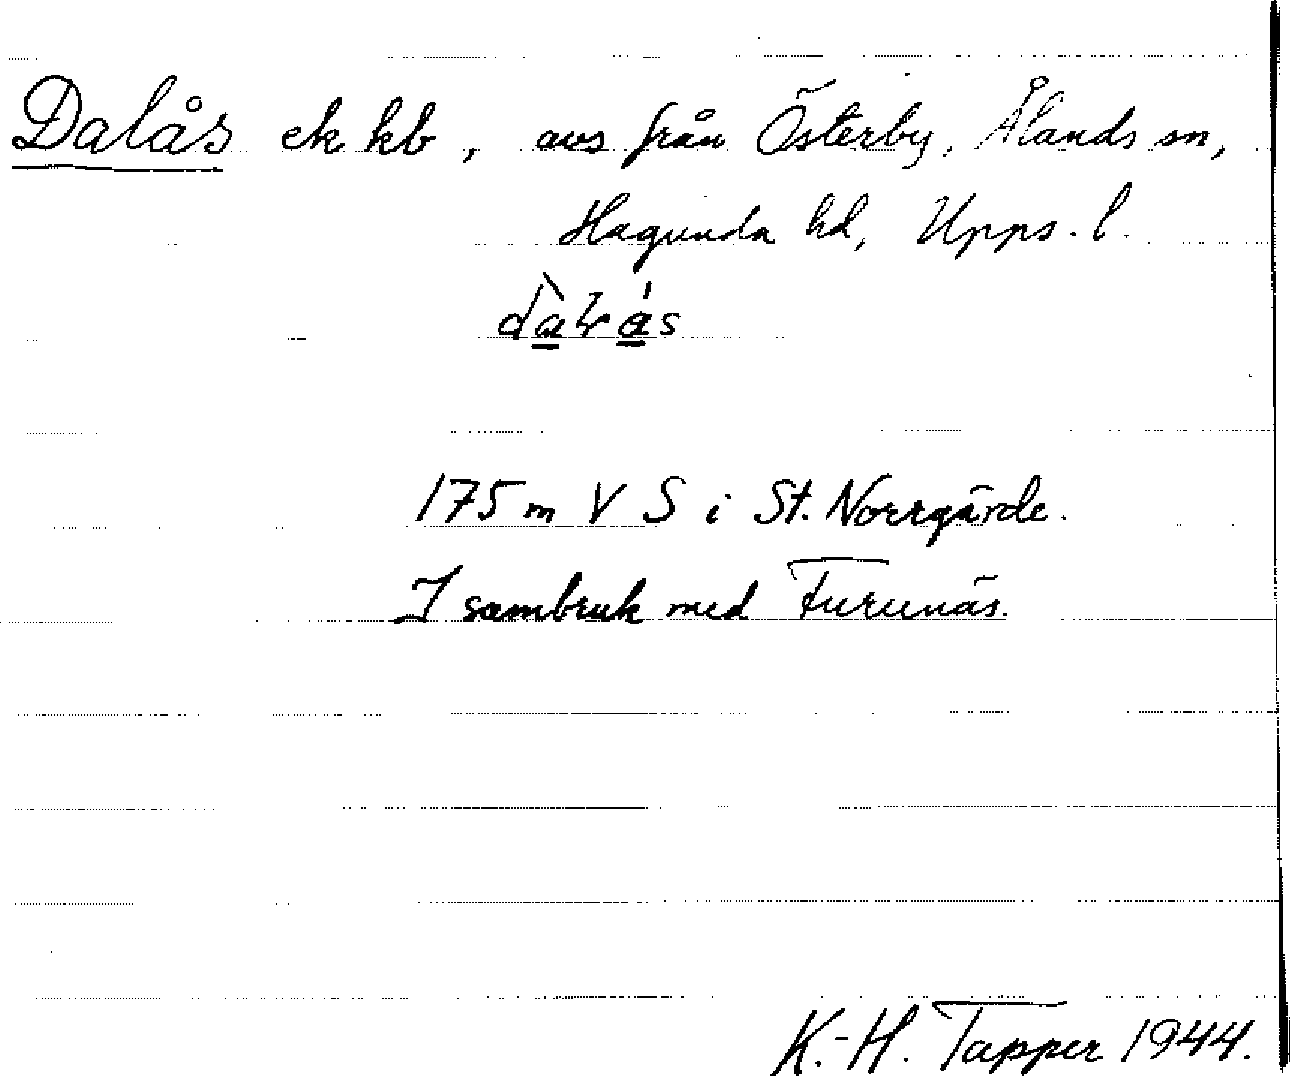 Dalås ek kb, avs från Österby, Ålands sn,
Hagunda hd, Upps. l.
175 m V S i St. Norrgärde.
I sambruk med Furunäs.
K.-H. Tapper 1944.